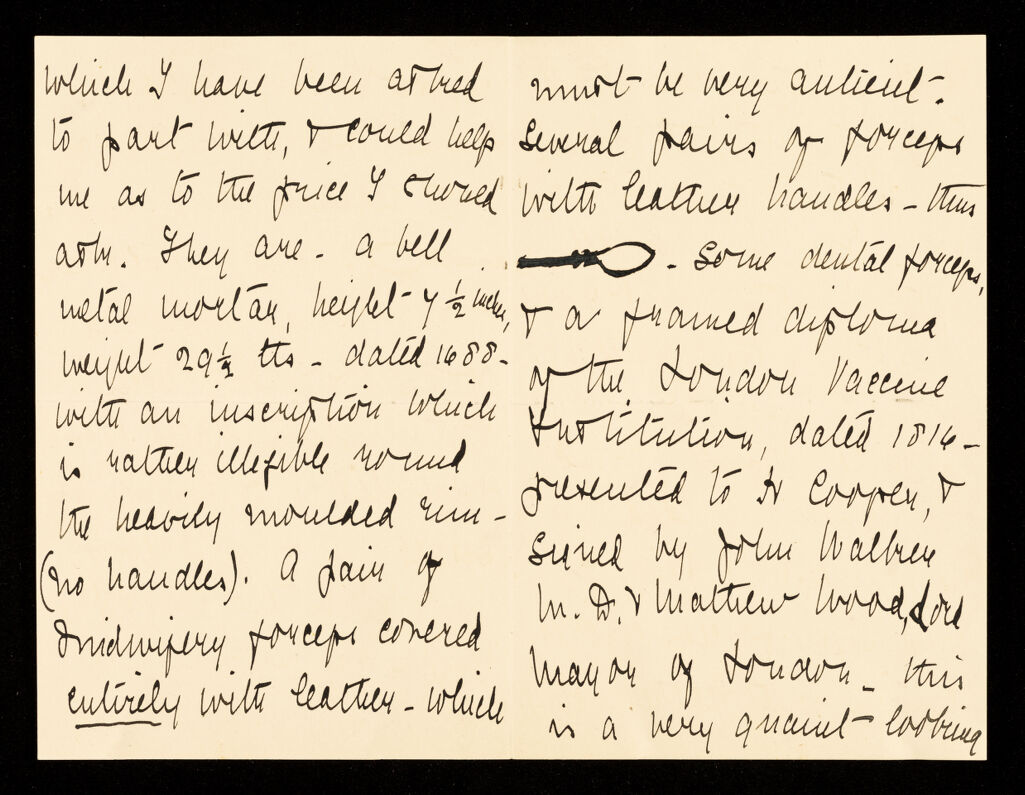 which I have been asked
to part with, & could help
me as to the price I should
ask. They are - a bell
metal mortar, height 7½ inches,
weight 29½ lbs - dated 1688 -
with an inscription which
is rather illegible round
the heavily moulded rim -
(no handles). A pair of
midwifery forceps covered
entirely with leather - which
must be very antient.
Several pairs of forceps
with leather handles - thus
- Some dental forceps,
& a framed diploma
of the London Vaccine
Institution, dated 1816 -
presented to Dr Cooper, &
signed by John Walker
M.D. & Matthew Wood, Lord
Mayor of London - this
is a very quaint looking